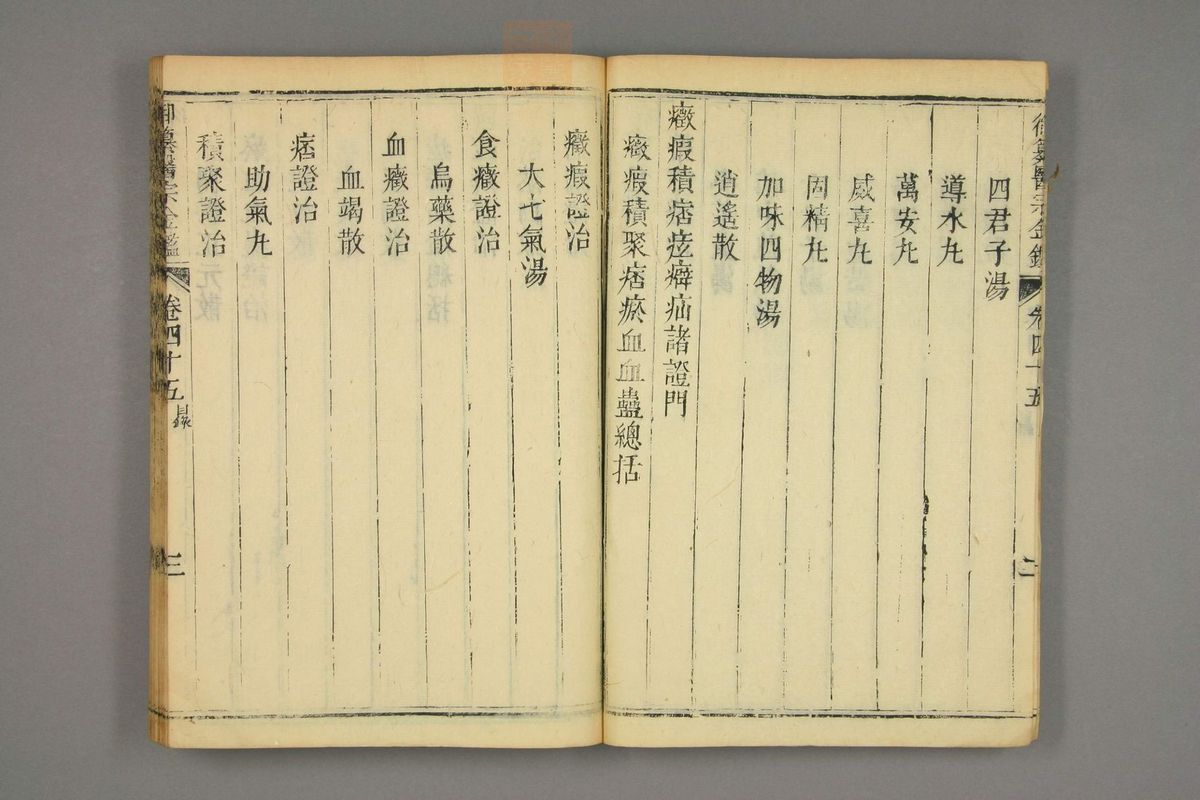 四君子湯
導水丸
萬安丸
威喜丸
固精丸
加味四物湯
逍遙散
癥瘕積痞痃癖疝諸證門
癥瘕積聚痞瘀血血蠱總括
卷四十五
二
癥瘕證治
大七氣湯
食癥證治
烏藥散
血癥證治
血竭散
痞證治
助氣丸
積聚證治
御纂醫宗金鑑
卷四十五
目錄
三